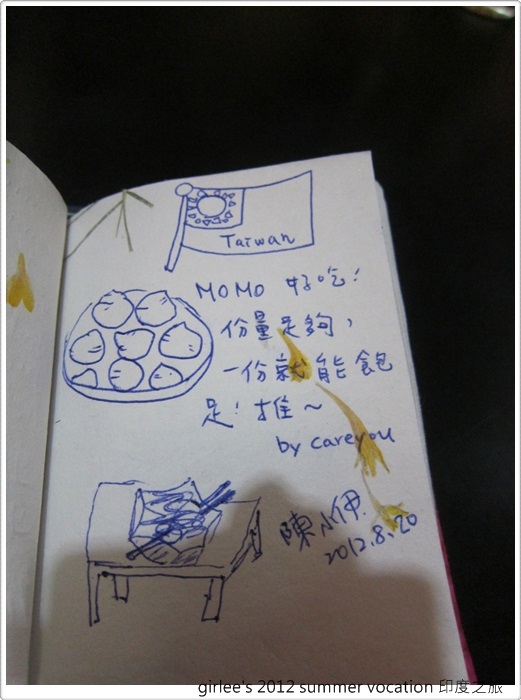 Taiwan
MOMO 好吃!
份量足夠，
一份就能飽
足! 推~
by careyou
陳小伊.
2012.8.20
girlee's 2012 summer vocation 印度之旅